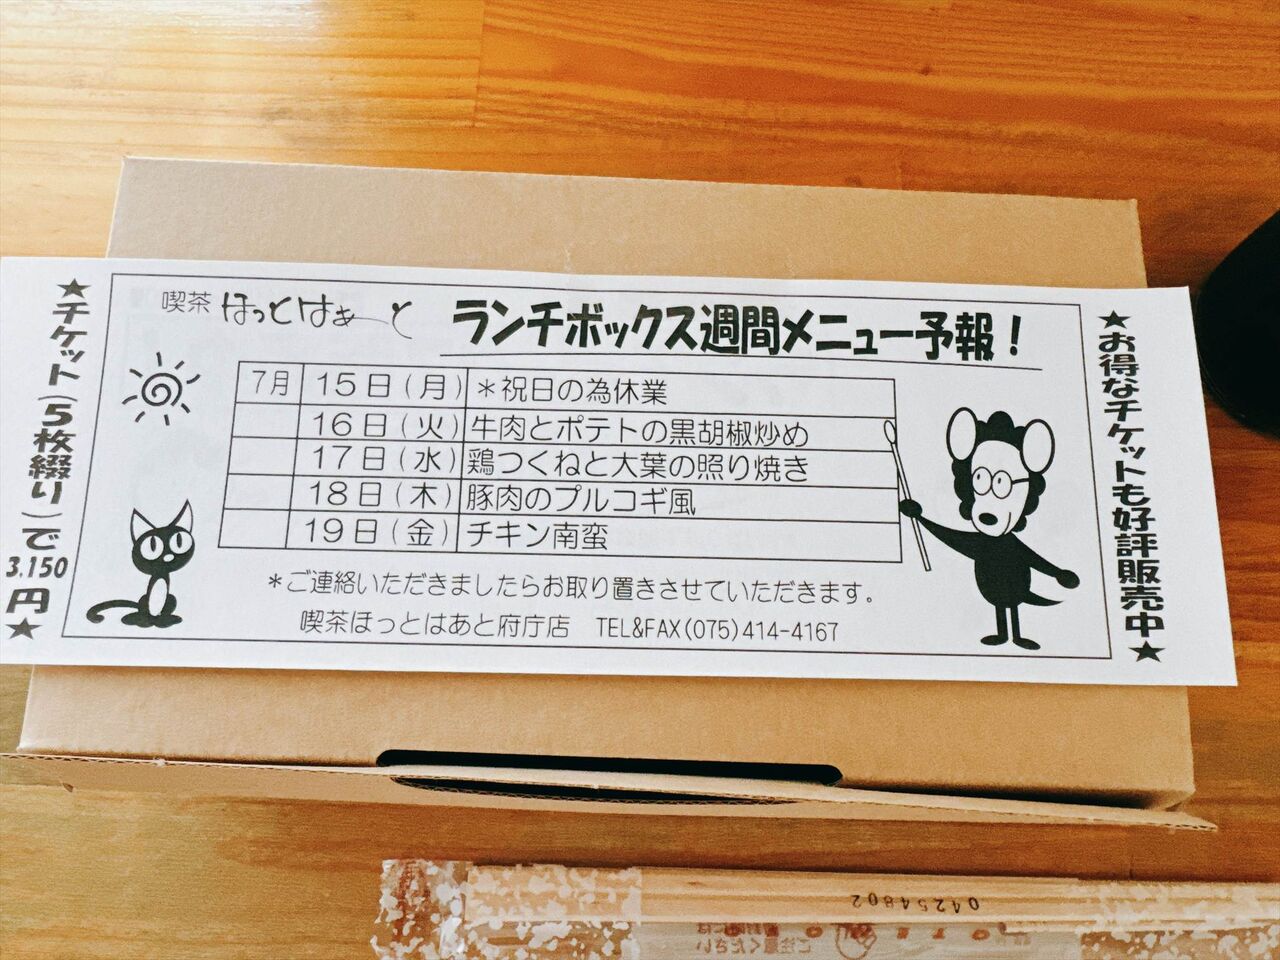 ★チケット(5枚綴り)で3,150円★
喫茶 ほっとはぁーと ランチボックス週間メニュー予報!
7月 15日(月) *祝日の為休業
16日(火) 牛肉とポテトの黒胡椒炒め
17日(水) 鶏つくねと大葉の照り焼き
18日(木) 豚肉のプルコギ風
19日(金) チキン南蛮
*ご連絡いただきましたらお取り置きさせていただきます。
喫茶ほっとはあと府庁店 TEL&FAX(075)414-4167
★お得なチケットも好評販売中★
04254802